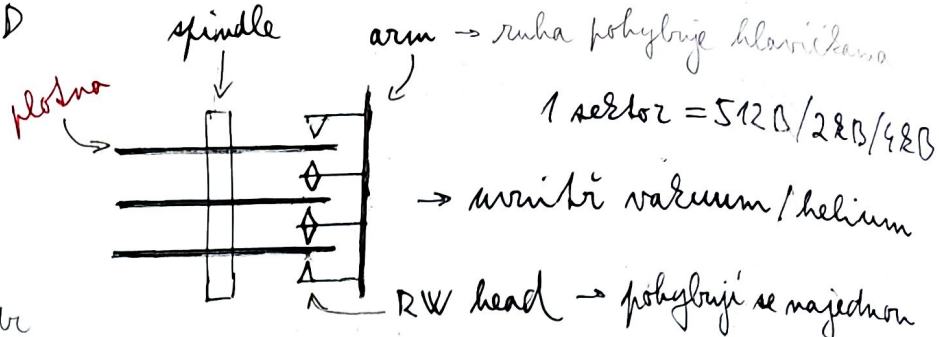 D
spindle
arm → ruka pohybuje hlavičkama
plotna
1 sektor = 512B/2kB/4kB
→ uvnitř vákuum/helium
RW head → pohybují se najednou